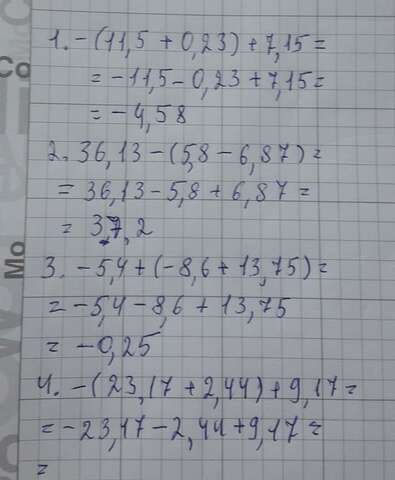 1. -(11,5 + 0,23) + 7,15 =
= -11,5 - 0,23 + 7,15 =
= -4,58
2. 36,13 - (5,8 - 6,87) =
= 36,13 - 5,8 + 6,87 =
= 37,2
3. -5,4 + (-8,6 + 13,75) =
= -5,4 - 8,6 + 13,75
= -0,25
4. -(23,17 + 2,44) + 9,17 =
= -23,17 - 2,44 + 9,17 =
=
Co
Mo